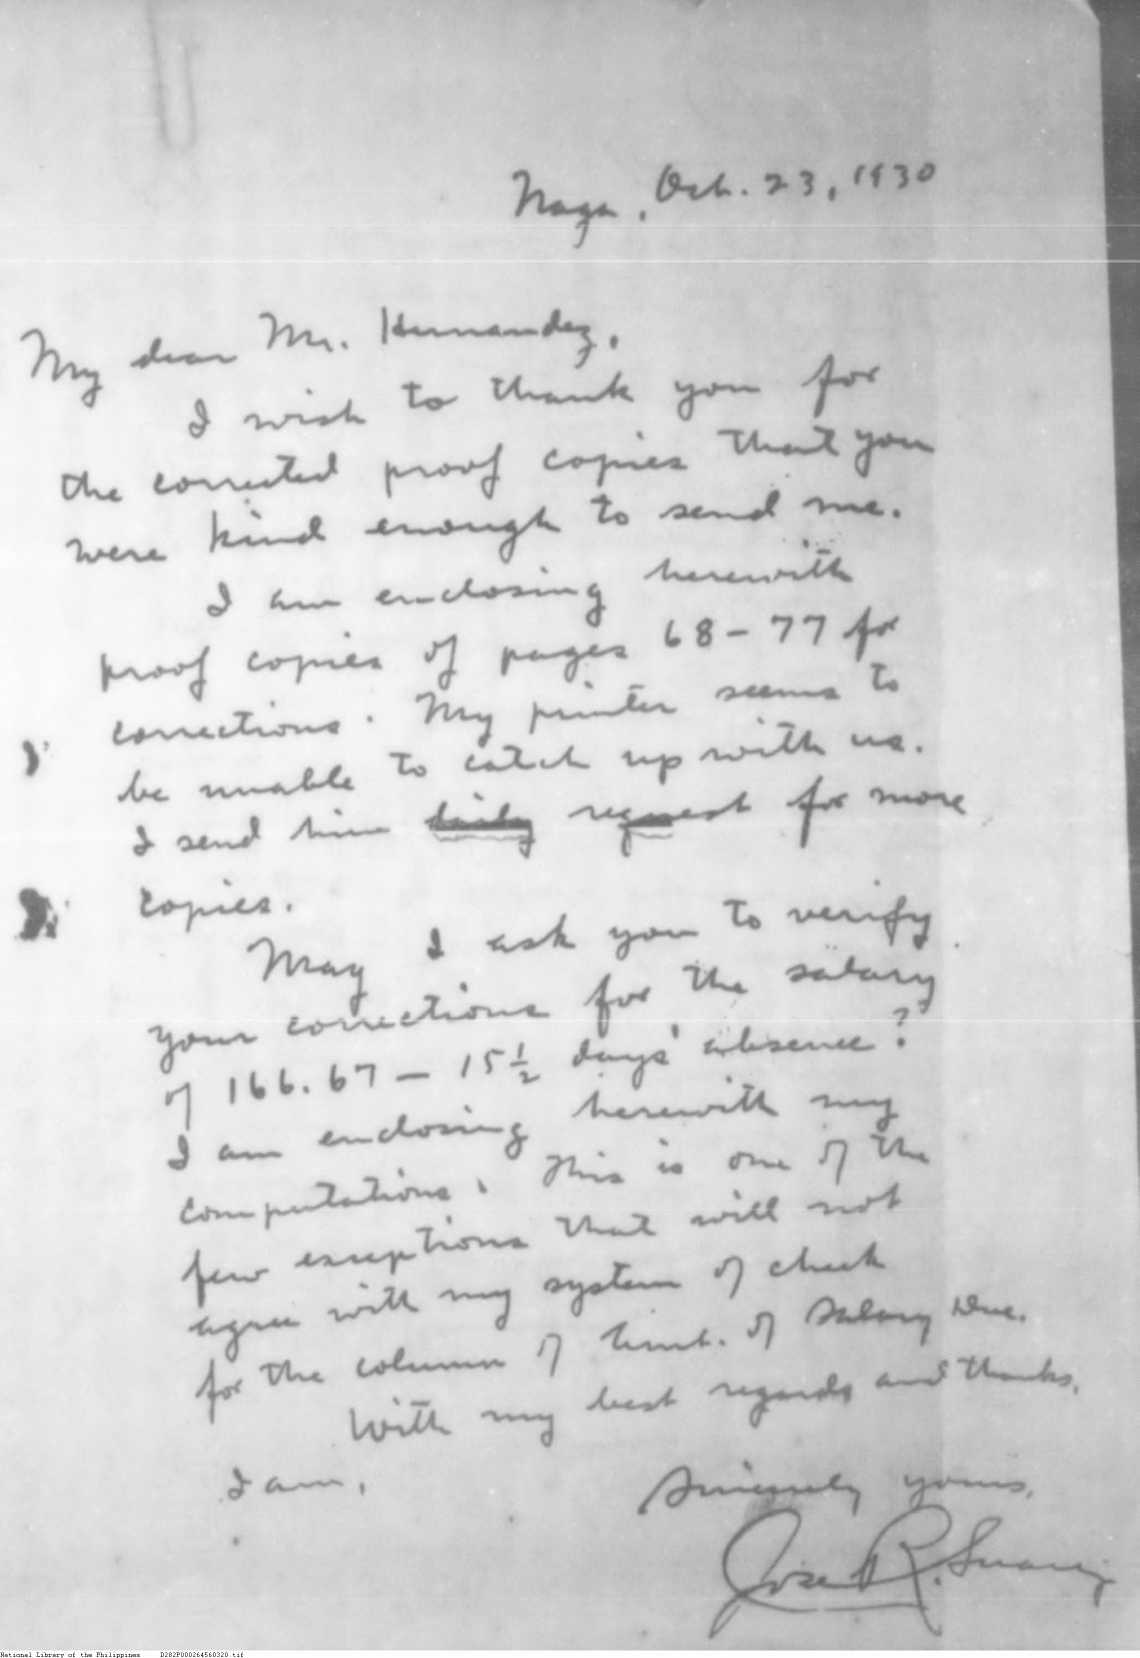 Naga, Oct. 23, 1930
My dear Mr. Hernandez,
I wish to thank you for
the corrected proof copies that you
were kind enough to send me.
I am enclosing herewith
proof copies of pages 68 - 77 for
corrections. My printer seems to
be unable to catch up with us.
I send him daily request for more
copies.
May I ask you to verify
your corrections for the salary
of 166.67 — 15 1/2 days' absence?
I am enclosing herewith my
computations. This is one of the
few exceptions that will not
agree with my system of check
for the column of of Salary Due.
With my best regards and thanks,
I am,
Sincerely yours,
Jose R. Suarez
National Library of the Philippines D282P000264560320.tif